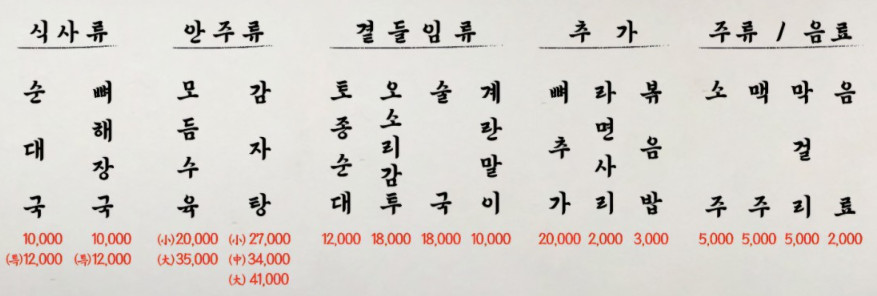 식사류
순대국 10,000 (특)12,000
뼈해장국 10,000 (특)12,000
안주류
모듬수육 (小)20,000 (大)35,000
감자탕 (小)27,000 (中)34,000 (大)41,000
곁들임류
토종순대 12,000
오소리감투 18,000
술국 18,000
계란말이 10,000
추가
뼈추가 20,000
라면사리 2,000
볶음밥 3,000
주류 / 음료
소주 5,000
맥주 5,000
막걸리 5,000
음료 2,000